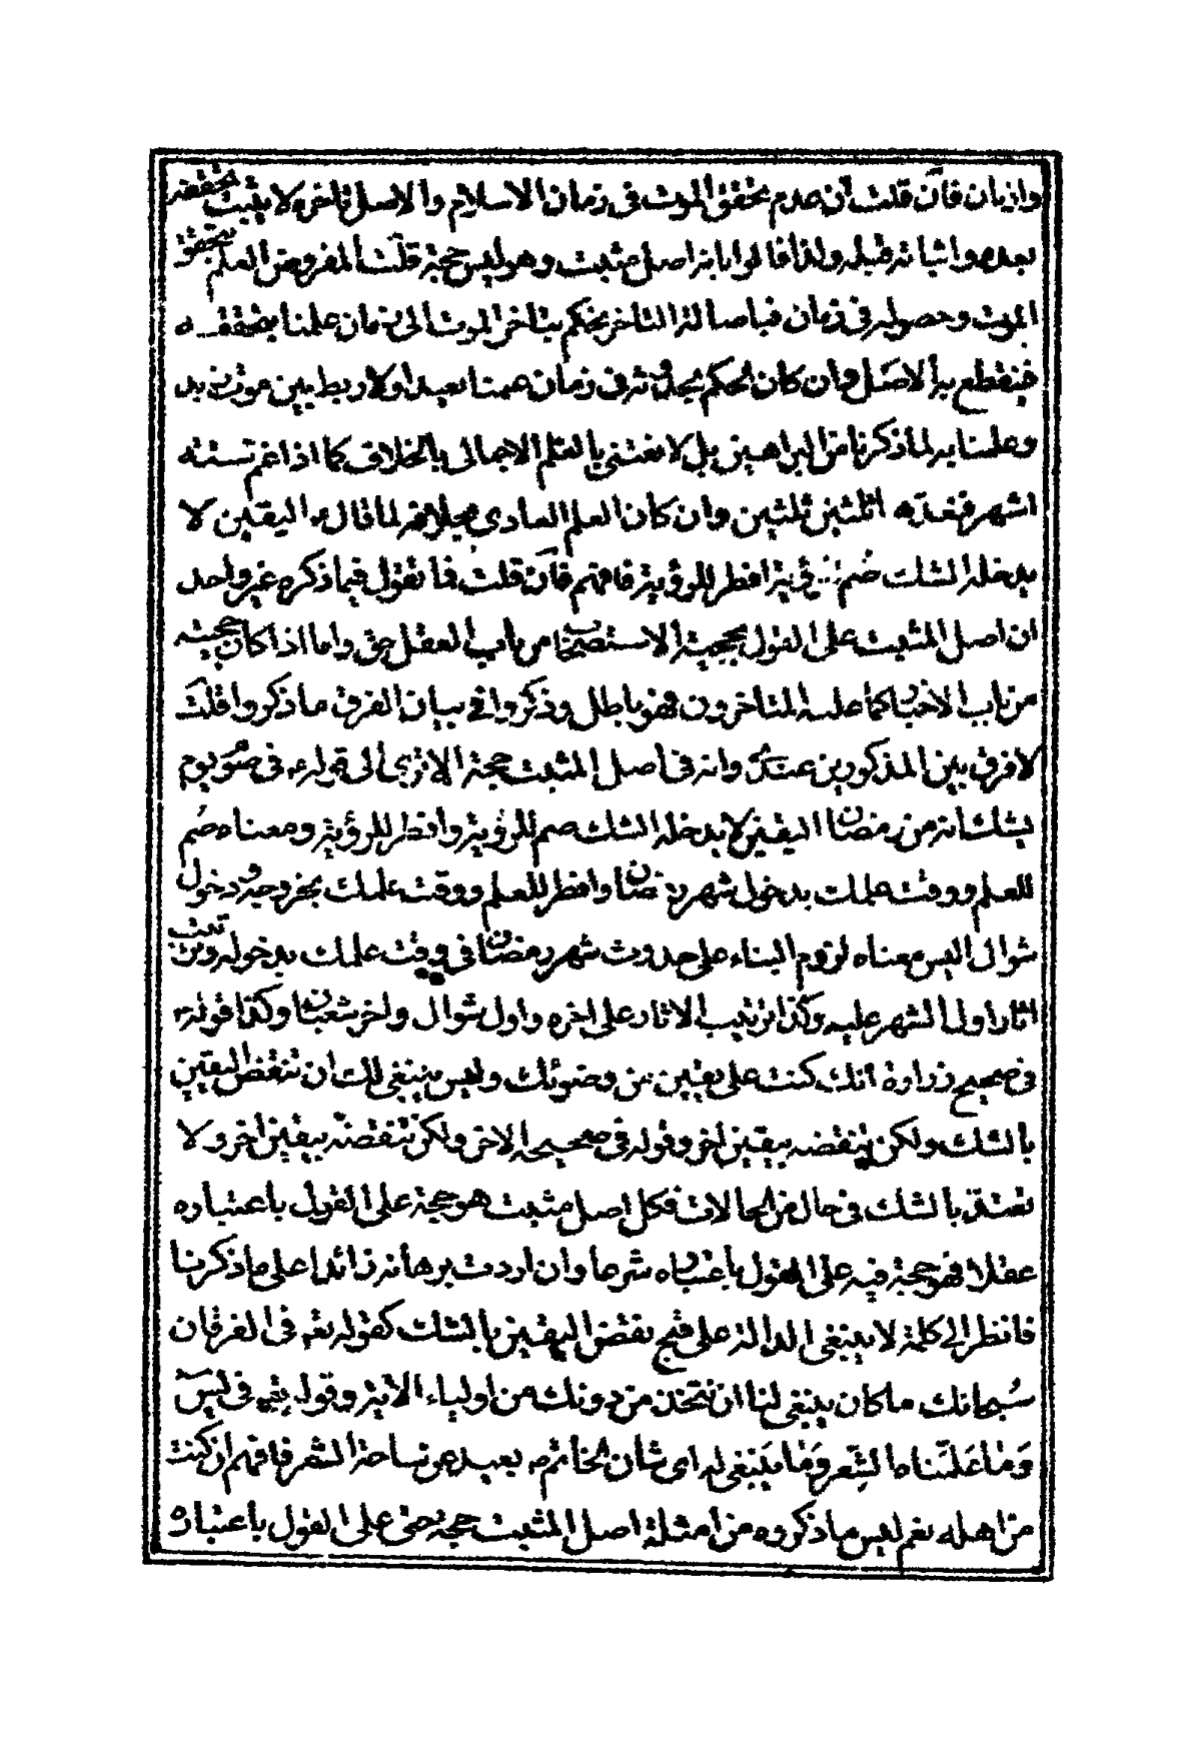 وازيان فان قلت ان عدم تحقق الموت فى زمان الاسلام والاصل تاخره لا يثبت تحققه
بعده واثباته قبله ولذا قالوا بانه اصل مثبت وهو ليس حجة قلت المفروض العلم بتحقق
الموت وحصوله فى زمان فباصالة التاخر يحكم بتاخر الموت الى زمان علمنا بتحققه
فينقطع به الاصل وان كان الحكم بحدوثه فى زمان عمنا بعيدا ولا ربط بين موت زيد
وعلمنا به لما ذكرنا من البراهين بل لا نعتنى بالعلم الاجمالى بالخلاف كما اذا غم تسته
اشهر فنعده ثلثين ثلثين وان كان العلم العادى بخلافه لما قال ع اليقين لا
يدخله الشك صم للرؤية وافطر للرؤية فافهم فان قلت فما تقول فيما ذكره غير واحد
ان اصل المثبت على القول بحجية الاستصحاب من باب العقل حق واما اذا كان حجيته
من باب الاخبار كما عليه المتاخرون فهو باطل وذكروا فى بيان الفرق ما ذكروا قلت
لا فرق بين المذكورين عندى وانه فى اصل المثبت حجة الا ترى الى قوله ع فى صوم يوم
يشك انه من رمضان اليقين لا يدخله الشك صم للرؤية وافطر للرؤية ومعناه صم
للعلم ووقت علمك بدخول شهر رمضان وافطر للعلم ووقت علمك بخروجه ودخول
شوال اليس معناه لزوم البناء على حدوث شهر رمضان فى وقت علمك بدخوله وترتيب
اثار اول الشهر عليه وكذا ترتيب الاثار على اخره واول شوال واخر شعبان وكذا قوله ع
فى صحيح زرارة انك كنت على يقين من وضوئك وليس ينبغى لك ان تنقض اليقين
بالشك ولكن تنقضه بيقين اخر وقوله فى صحيحه الاخر ولكن تنقضه بيقين اخر ولا
تعتد بالشك فى حال من الحالات فكل اصل مثبت هو حجة على القول باعتباره
عقلا فهو حجة فيه على القول باعتباره شرعا وان اردت برهانه زائدا على ما ذكرنا
فانظر الى كلمة لا ينبغى الدالة على قبح نقض اليقين بالشك كقوله تع فى الفرقان
سبحانك ما كان ينبغى لنا ان نتخذ من دونك من اولياء الاية وقوله تع فى ليس
وَمٰا عَلَّمناه الشِّعرَ وَمٰا يَنبَغى له اى شان الخاتم ص بعيد عن ساحة الشعر فافهم ان كنت
من اهله نعم ليس ما ذكروه من امثلة اصل المثبت حجة حتى على القول باعتباره